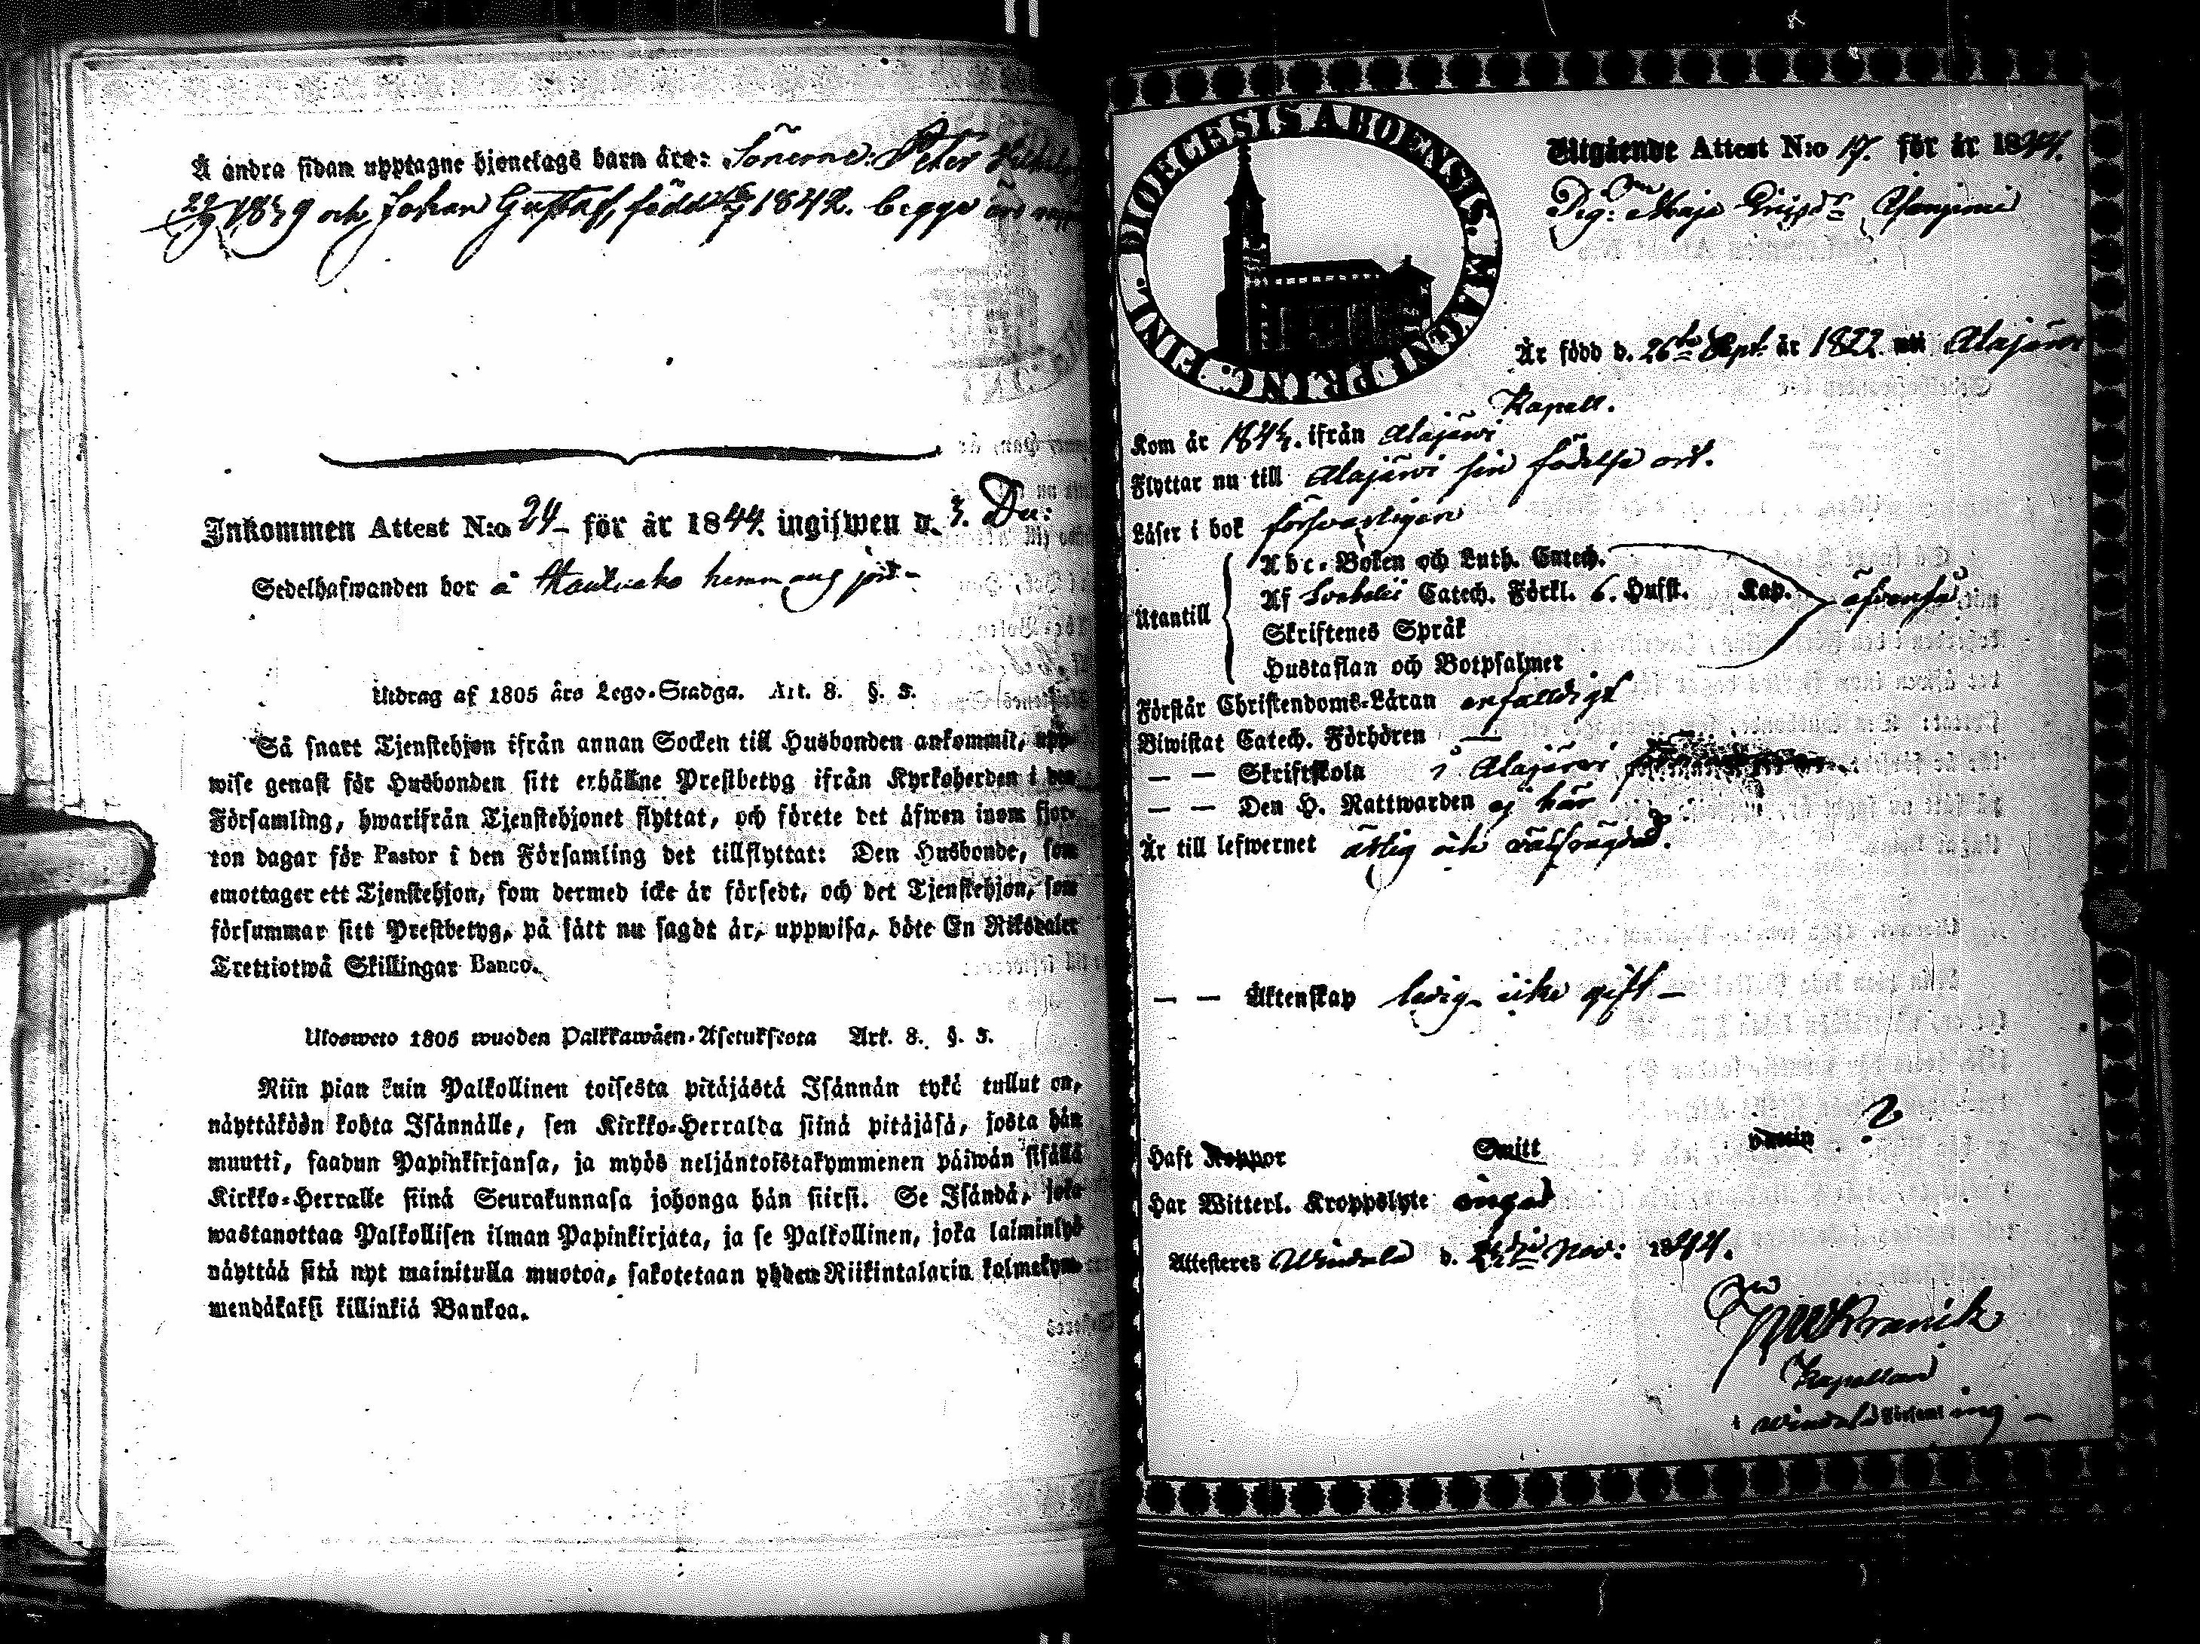 Å andra sidan upptagne hjonelags barn äro: Sönerne: Peter
1839 och Johan Gustaf, född 1842. begge äro
Inkommen Attest N:o 24 för år 1844. ingifwen d. 3. Dec:
Sedelhafwanden bor å hemmans jord
Utdrag af 1805 års Lego-Stadga. Art. 8. §. 5.
Så snart Tjenstehjon ifrån annan Socken till Husbonden ankommit, upp-
wise genast för Husbonden sitt erhållne Prestbetyg ifrån Kyrkoherden i den
Församling, hwarifrån Tjenstehjonet flyttat, och förete det äfwen inom fjor-
ton dagar för Pastor i den Församling det tillflyttat: Den Husbonde, som
emottager ett Tjenstehjon, som dermed icke är försedt, och det Tjenstehjon, som
försummar sitt Prestbetyg, på sätt nu sagdt är, uppwisa, böte En Riksdaler
Trettiotwå Skillingar Banco.
Ulosweto 1805 wuoden Palkkawäen-Asetuksesta Art. 8. §. 5.
Niin pian kuin Palkollinen toisesta pitäjästä Isännän tykö tullut on,
näyttäköön kohta Isännälle, sen Kirkko-Herralda siinä pitäjäsä, josta hän
muutti, saadun Papinkirjansa, ja myös neljäntoistakymmenen päiwän sisällä
Kirkko-Herralle siinä Seurakunnasa johonga hän siirsi. Se Isändä, joka
wastanottaa Palkollisen ilman Papinkirjata, ja se Palkollinen, joka laiminlyö
näyttää sitä nyt mainitulla muotoa, sakotetaan yhden Riikintalarin kolmekym-
mendäkaksi killinkiä Bankoa.
DIOECESIS ABOENSIS. MAGNI PRINC. FINL.
Utgående Attest N:o 17. för år 1844.
Pig: Maja
Är född d. 26te Sept. år 1822 uti Alajärvi
Kapell.
Kom år 1844. ifrån Alajärwi
Flyttar nu till Alajärwi sin födelse ort.
Läser i bok försvarligen
Utantill
Abc-Boken och Luth. Catech.
Af Svebelii Catech. Förkl. 6. Hufst. Kap. äfvenså
Skriftenes Språk
Hustaflan och Botpsalmer
Förstår Christendoms-Läran enfaldigt
Biwistat Catech. Förhören —
— — Skriftskola i Alajärvi
— — Den H. Nattwarden ej här
Är till lefwernet ärlig och välfrägdad.
— — Äktenskap ledig icke gift —
Haft Koppor Smitt Vaccin ?
Har Witterl. Kroppslyte inget
Attesteres Windala d. Nov: 1844.
Kapellan
i Windala Församling —